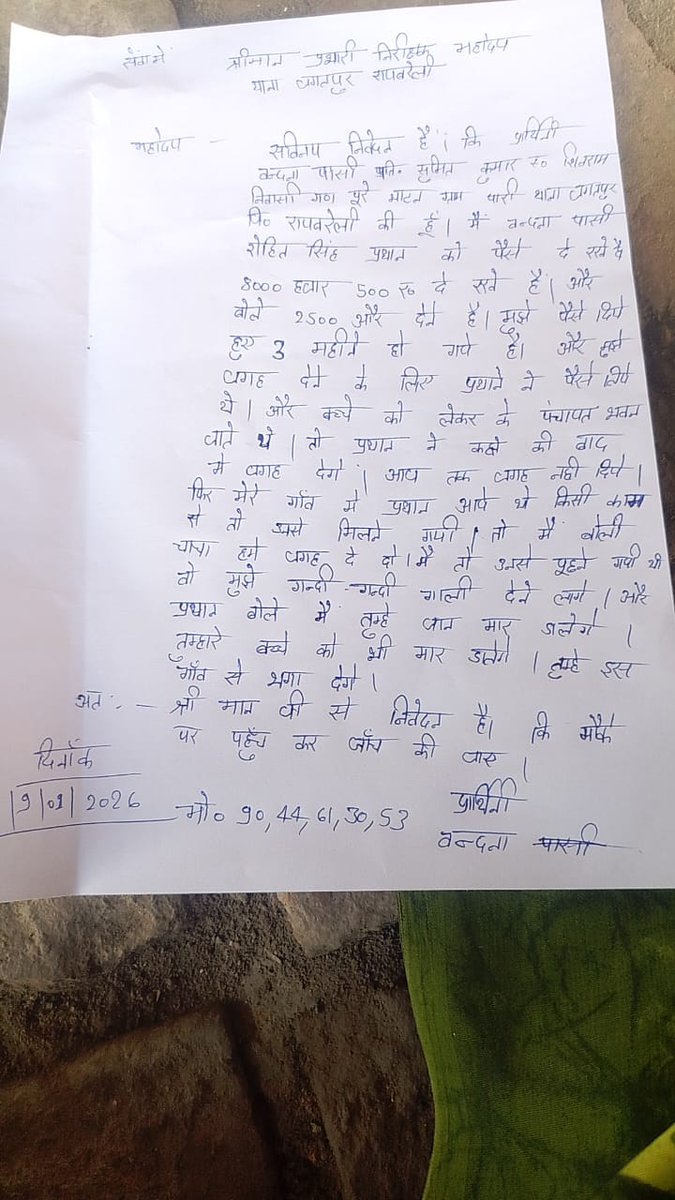 सेवा मे श्रीमान प्रभारी निरीक्षक महोदय
थाना जगतपुर रायबरेली
महोदय - सविनय निवेदन है। कि प्रार्थिनी
वन्दना पासी पति. सुमित कुमार S० शिवराम
निवासी गण पूरे माटन ग्राम थाना जगतपुर
जि० रायबरेली की हूँ। मैं वन्दना पासी
रोहित सिंह प्रधान को पैसे दे रखे है
8000 हजार 500 रु० दे रखे है। और
बोले 2500 और देने है। मुझे पैसे दिये
हुए 3 महीने हो गये है। और मुझे
जगह देने के लिए प्रधान ने पैसे लिये
थे। और बच्चे को लेकर के पंचायत भवन
जाते थे। तो प्रधान ने कहे की बाद
मे जगह देगे। आज तक जगह नही दिये।
फिर मेरे गाँव मे प्रधान आये थे किसी काम
से तो उनसे मिलने गयी। तो मैं बोली
चाचा हमे जगह दे दो। मैं तो उनसे पूछने गयी थी
वो मुझे गन्दी-गन्दी गाली देने लागे। और
प्रधान बोले मैं तुम्हे जान मार डालेगे।
तुम्हारे बच्चे को भी मार डालेगे। तुम्हे इस
गाँव से भगा देगे।
अतः - श्री मान जी से निवेदन है। कि मौके
पर पहुँच कर जाँच की जाए।
दिनाँक
19/01/2026
मो० 90,44,61,30,53
प्रार्थिनी
वन्दना पासी